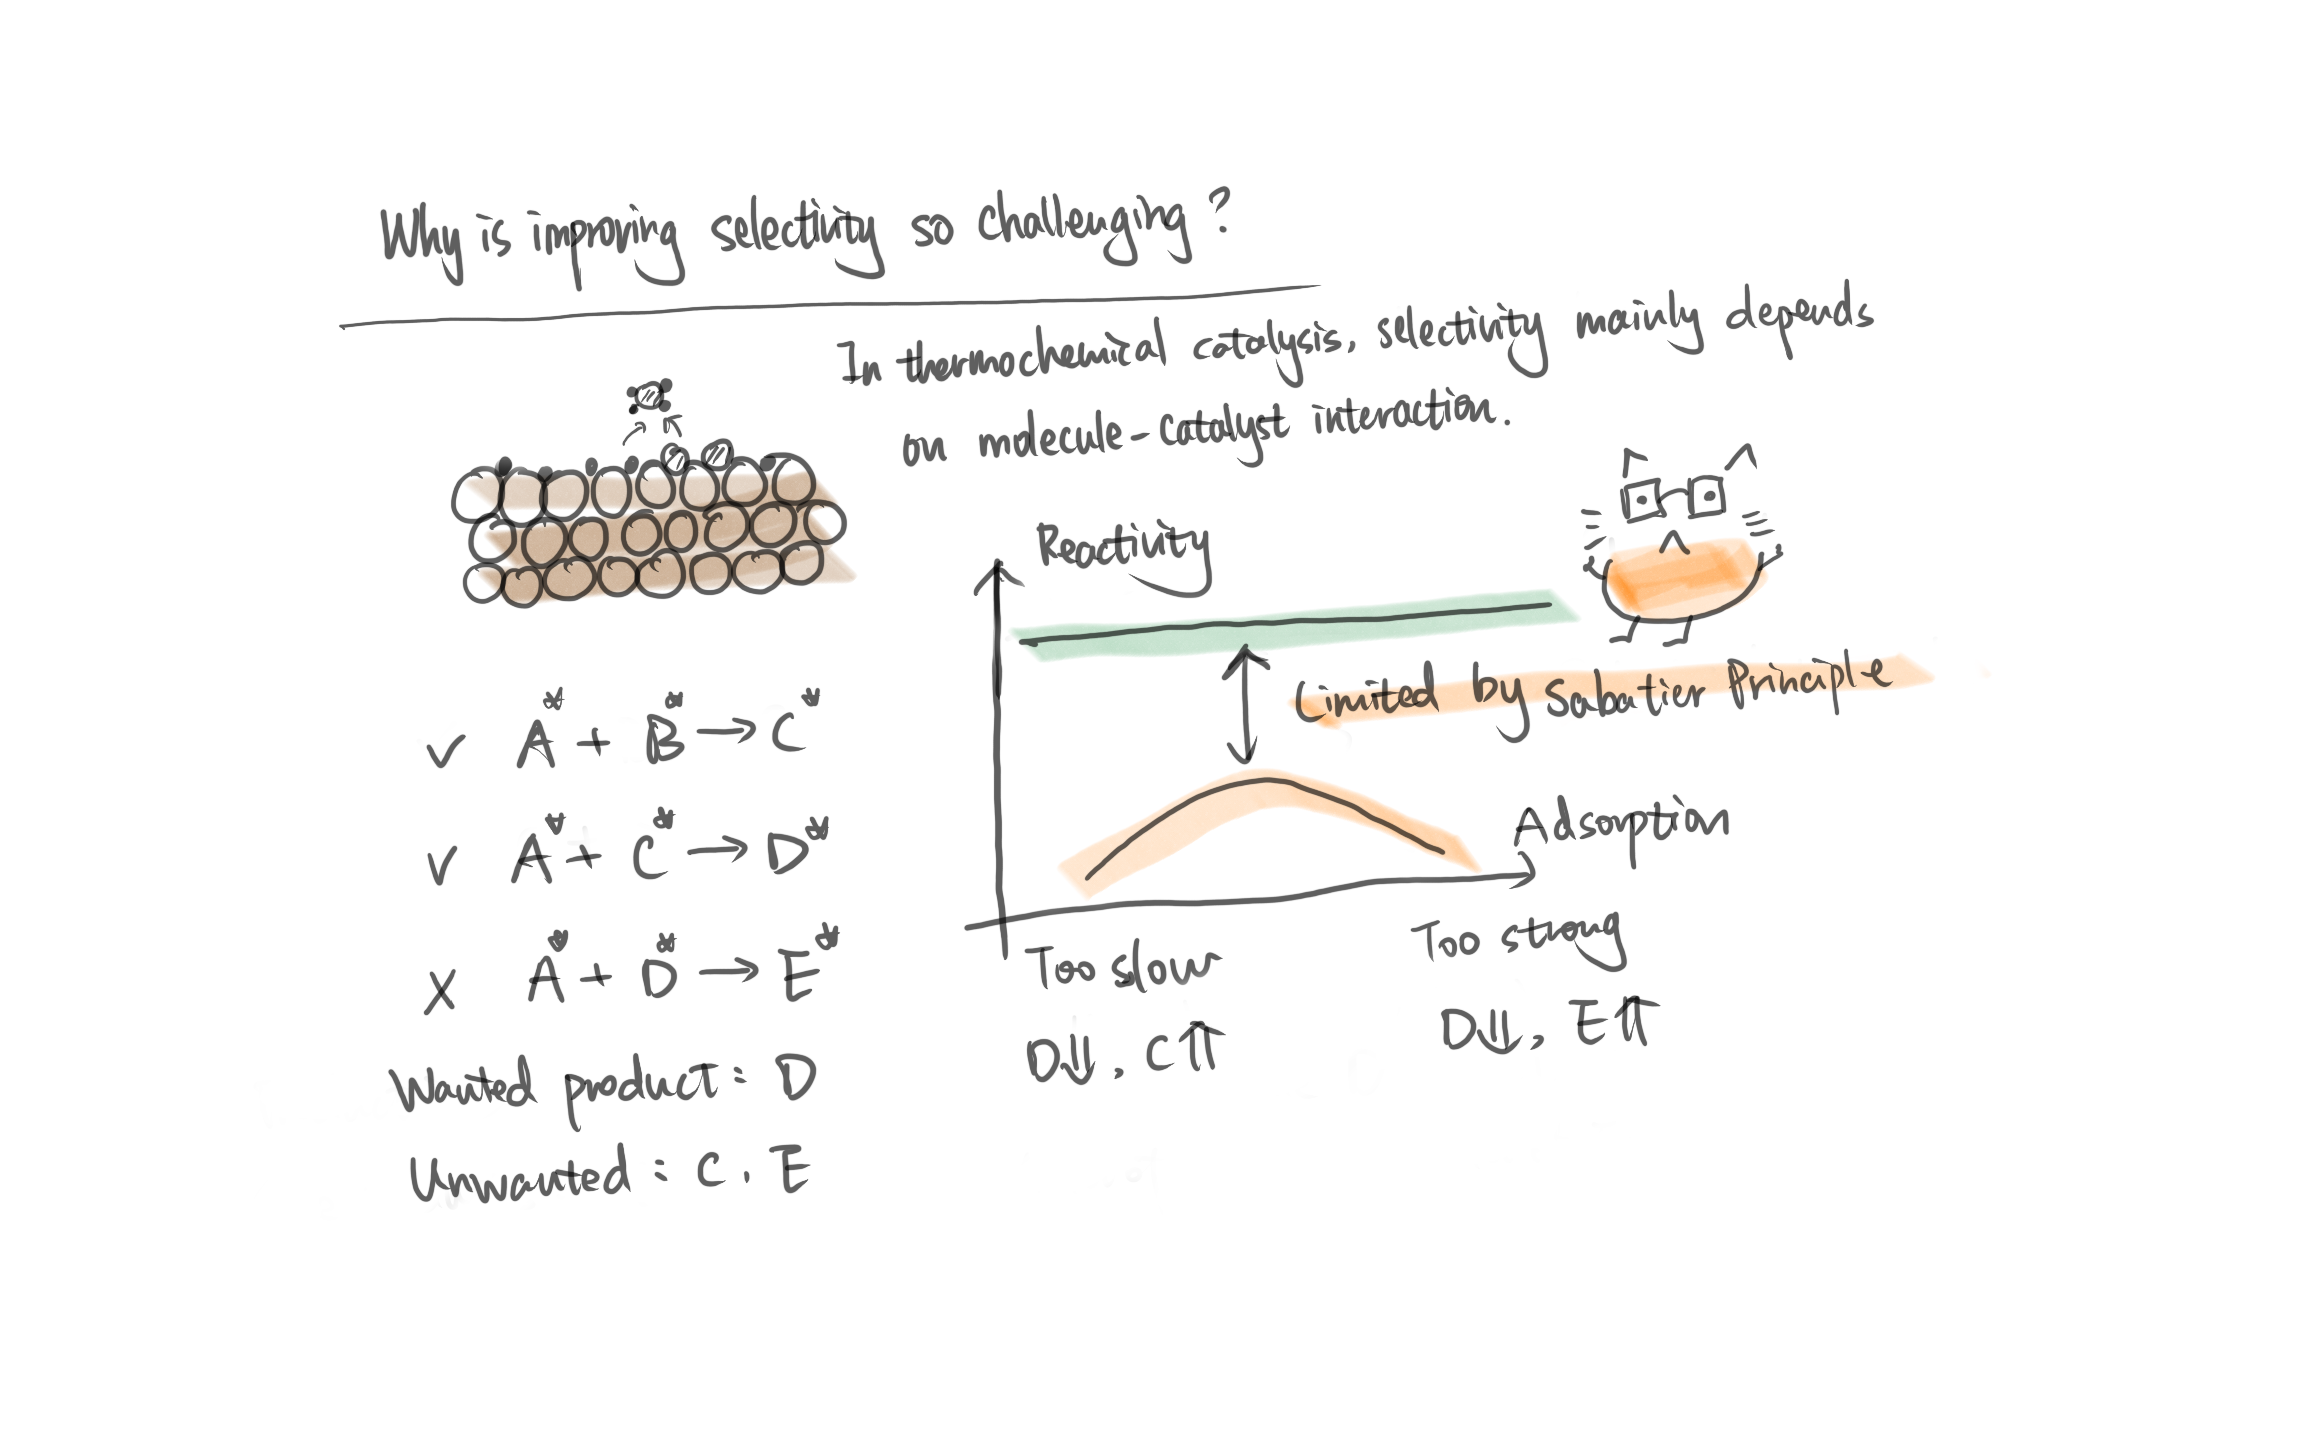 Why is improving selectivity so challenging?
In thermochemical catalysis, selectivity mainly depends
on molecule-catalyst interaction.
Reactivity
Limited by Sabatier Principle
Adsorption
Too slow
D⇓, C⇑
Too strong
D⇓, E⇑
✓ A* + B* → C*
✓ A* + C* → D*
X A* + D* → E*
Wanted product: D
Unwanted: C, E